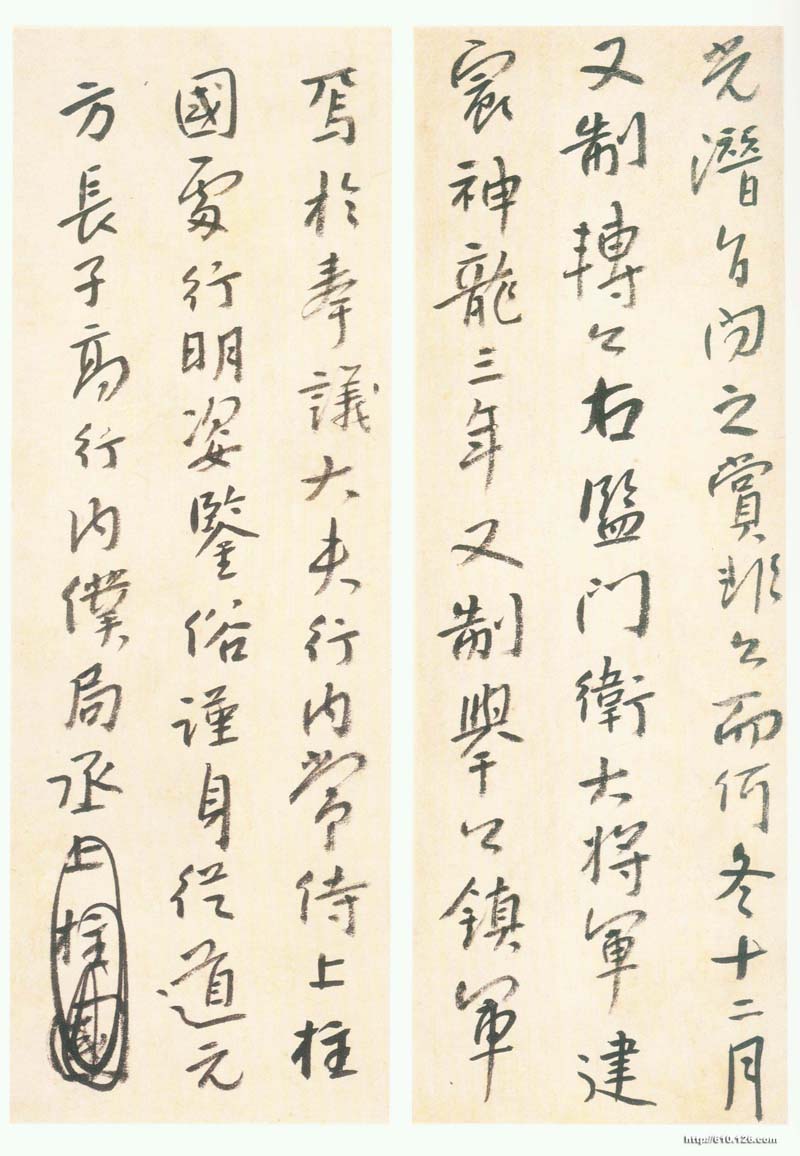 潛之賞非公而何冬十二月
又制轉公右監門衛大將軍建
神龍三年又制舉公鎮軍
焉於奉議大夫行內常侍上柱
國處行明姿鑒俗謹身從道元
方長子高行內僕局丞上柱國
http://610.126.com